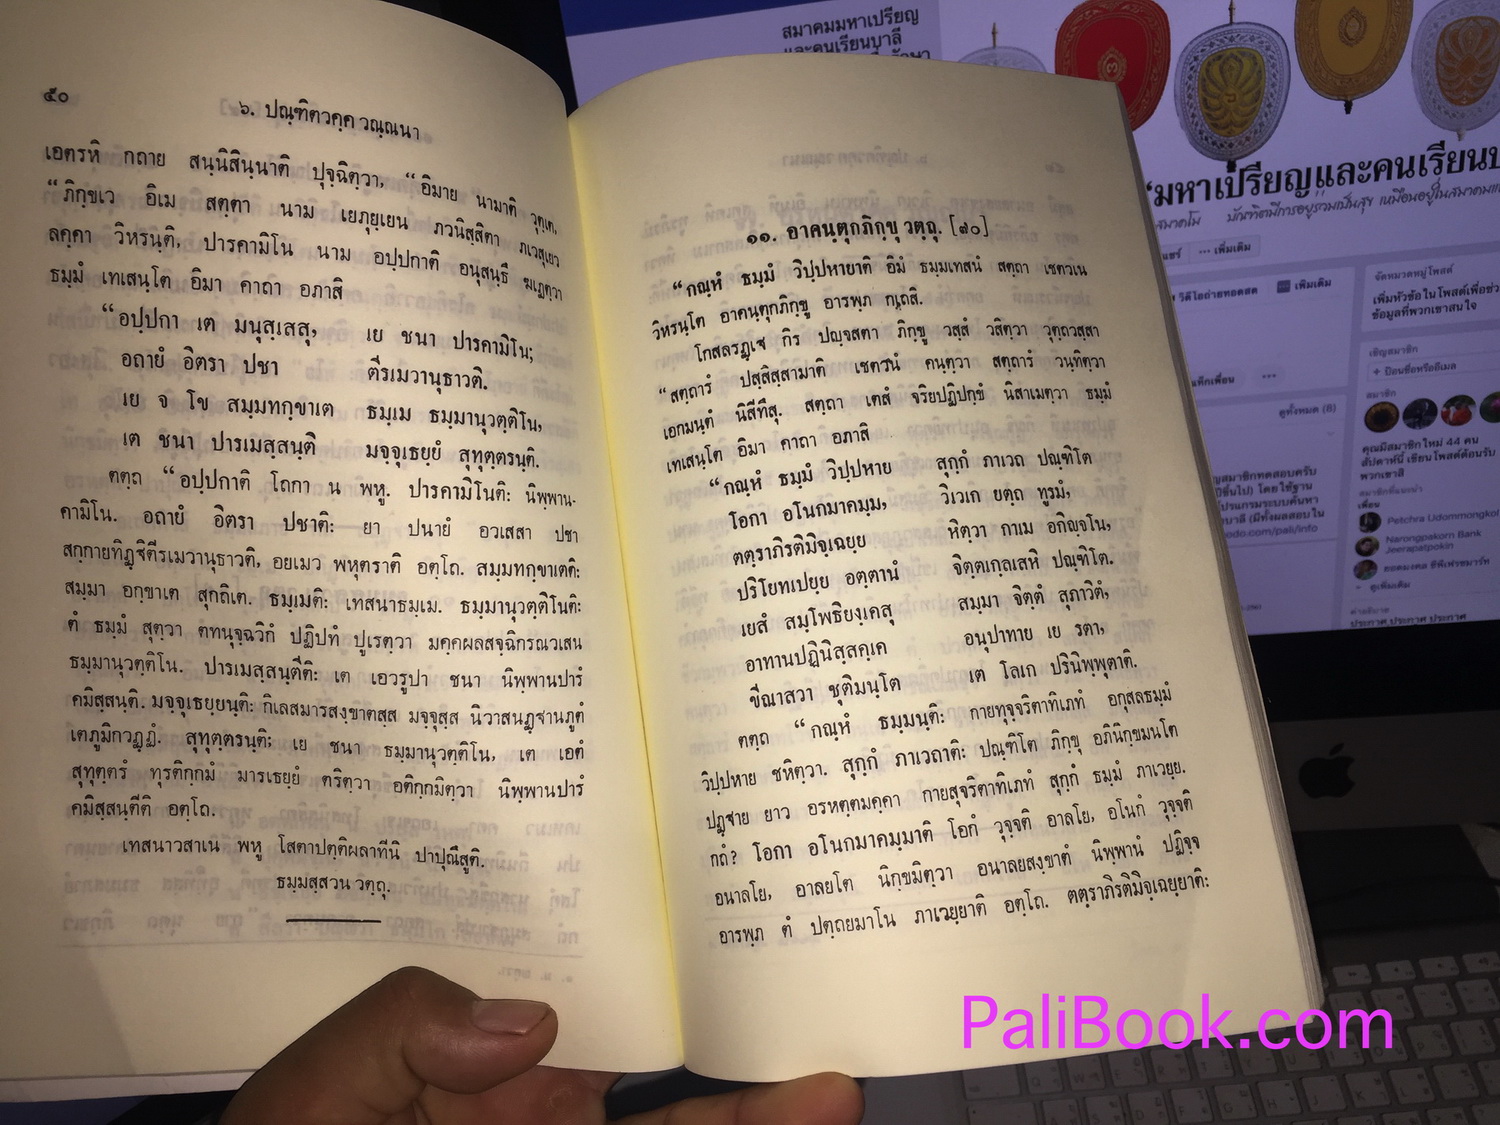 ๕๐
๖. ปณฺฑิตวคฺค วณฺณนา
เอตรหิ กถาย สนฺนิสินฺนาติ ปุจฺฉิตฺวา, “อิมาย นามาติ วุตฺเต,
“ภิกฺขเว อิเม สตฺตา นาม เยภุยฺเยน ภวนิสฺสิตา ภเวสุเยว
ลคฺคา วิหรนฺติ, ปารคามิโน นาม อปฺปกาติ อนุสนฺธึ ฆเฏตฺวา
ธมฺมํ เทเสนฺโต อิมา คาถา อภาสิ
“อปฺปกา เต มนุสฺเสสุ, เย ชนา ปารคามิโน;
อถายํ อิตรา ปชา ตีรเมวานุธาวติ.
เย จ โข สมฺมทกฺขาเต ธมฺเม ธมฺมานุวตฺติโน,
เต ชนา ปารเมสฺสนฺติ มจฺจุเธยฺยํ สุทุตฺตรนฺติ.
ตตฺถ “อปฺปกาติ โถกา น พหู. ปารคามิโนติ: นิพฺพาน-
คามิโน. อถายํ อิตรา ปชาติ: ยา ปนายํ อวเสสา ปชา
สกฺกายทิฏฺฐิตีรเมวานุธาวติ, อยเมว พหุตราติ อตฺโถ. สมฺมทกฺขาเตติ:
สมฺมา อกฺขาเต สุกถิเต. ธมฺเมติ: เทสนาธมฺเม. ธมฺมานุวตฺติโนติ:
ตํ ธมฺมํ สุตฺวา ตทนุจฺฉวิกํ ปฏิปทํ ปูเรตฺวา มคฺคผลสจฺฉิกรณวเสน
ธมฺมานุวตฺติโน. ปารเมสฺสนฺตีติ: เต เอวรูปา ชนา นิพฺพานปารํ
คมิสฺสนฺติ. มจฺจุเธยฺยนฺติ: กิเลสมารสงฺขาตสฺส มจฺจุสฺส นิวาสนฏฺฐานภูตํ
เตภูมิกวฏฺฏํ. สุทุตฺตรนฺติ: เย ชนา ธมฺมานุวตฺติโน, เต เอตํ
สุทุตฺตรํ ทุรติกฺกมํ มารเธยฺยํ ตริตฺวา อติกฺกมิตฺวา นิพฺพานปารํ
คมิสฺสนฺตีติ อตฺโถ.
เทสนาวสาเน พหู โสตาปตฺติผลาทีนิ ปาปุณึสูติ.
ธมฺมสฺสวน วตฺถุ.
๑๑. อาคนฺตุกภิกฺขุ วตฺถุ. [๗๐]
“กณฺหํ ธมฺมํ วิปฺปหายาติ อิมํ ธมฺมเทสนํ สตฺถา เชตวเน
วิหรนฺโต อาคนฺตุกภิกฺขู อารพฺภ กเถสิ.
โกสลรฏฺเฐ กิร ปญฺจสตา ภิกฺขู วสฺสํ วสิตฺวา วุตฺถวสฺสา
“สตฺถารํ ปสฺสิสฺสามาติ เชตวนํ คนฺตฺวา สตฺถารํ วนฺทิตฺวา
เอกมนฺตํ นิสีทึสุ. สตฺถา เตสํ จริยปฏิปกฺขํ นิสาเมตฺวา ธมฺมํ
เทเสนฺโต อิมา คาถา อภาสิ
“กณฺหํ ธมฺมํ วิปฺปหาย สุกฺกํ ภาเวถ ปณฺฑิโต
โอกา อโนกมาคมฺม, วิเวเก ยตฺถ ทูรมํ,
ตตฺราภิรติมิจฺเฉยฺย หิตฺวา กาเม อกิญฺจโน,
ปริโยทเปยฺย อตฺตานํ จิตฺตเกฺลเสหิ ปณฺฑิโต.
เยสํ สมฺโพธิยงฺเคสุ สมฺมา จิตฺตํ สุภาวิตํ,
อาทานปฏินิสฺสคฺเค อนุปาทาย เย รตา,
ขีณาสวา ชุติมนฺโต เต โลเก ปรินิพฺพุตาติ.
ตตฺถ “กณฺหํ ธมฺมนฺติ: กายทุจฺจริตาทิเภทํ อกุสลธมฺมํ
วิปฺปหาย ชหิตฺวา. สุกฺกํ ภาเวถาติ: ปณฺฑิโต ภิกฺขุ อภินิกฺขมนโต
ปฏฺฐาย ยาว อรหตฺตมคฺคา กายสุจริตาทิเภทํ สุกฺกํ ธมฺมํ ภาเวยฺย.
กถํ? โอกา อโนกมาคมฺมาติ โอกํ วุจฺจติ อาลโย, อโนกํ วุจฺจติ
อนาลโย, อาลยโต นิกฺขมิตฺวา อนาลยสงฺขาตํ นิพฺพานํ ปฏิจฺจ
อารพฺภ ตํ ปตฺถยมาโน ภาเวยฺยาติ อตฺโถ. ตตฺราภิรติมิจฺเฉยฺยาติ:
สมาคมมหาเปรียญ
และคนเรียนบาลี
“มหาเปรียญและคนเรียนบ
บัณฑิตมีการอยู่ร่วมเป็นสุข เหมือนอยู่ในสมาคมแ
แชร์ ··· เพิ่มเติม
วิดีโอถ่ายทอดสด เพิ่มเติม
จัดหมวดหมู่โพสต์
เพิ่มหัวข้อในโพสต์เพื่อช่ว
ข้อมูลที่พวกเขาสนใจ
เชิญสมาชิก
+ ป้อนชื่อหรืออีเมล
ดูทั้งหมด (8)
สมาชิก
คุณมีสมาชิกใหม่ 44 คน
สัปดาห์นี้ เขียนโพสต์ต้อนรับ
พวกเขาสิ
เพื่อน
Petchra Udommongkol
Narongpakorn Bank
Jeerapatpokin
ดูเพิ่มเติม
คำอธิบาย
ประกาศ ประกาศ ประกาศ
PaliBook.com